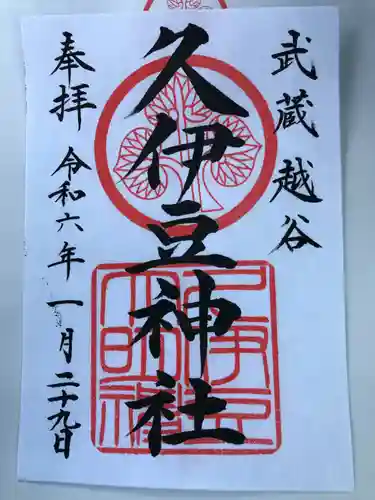 武蔵越谷
久伊豆神社
奉拝
令和六年一月二十九日